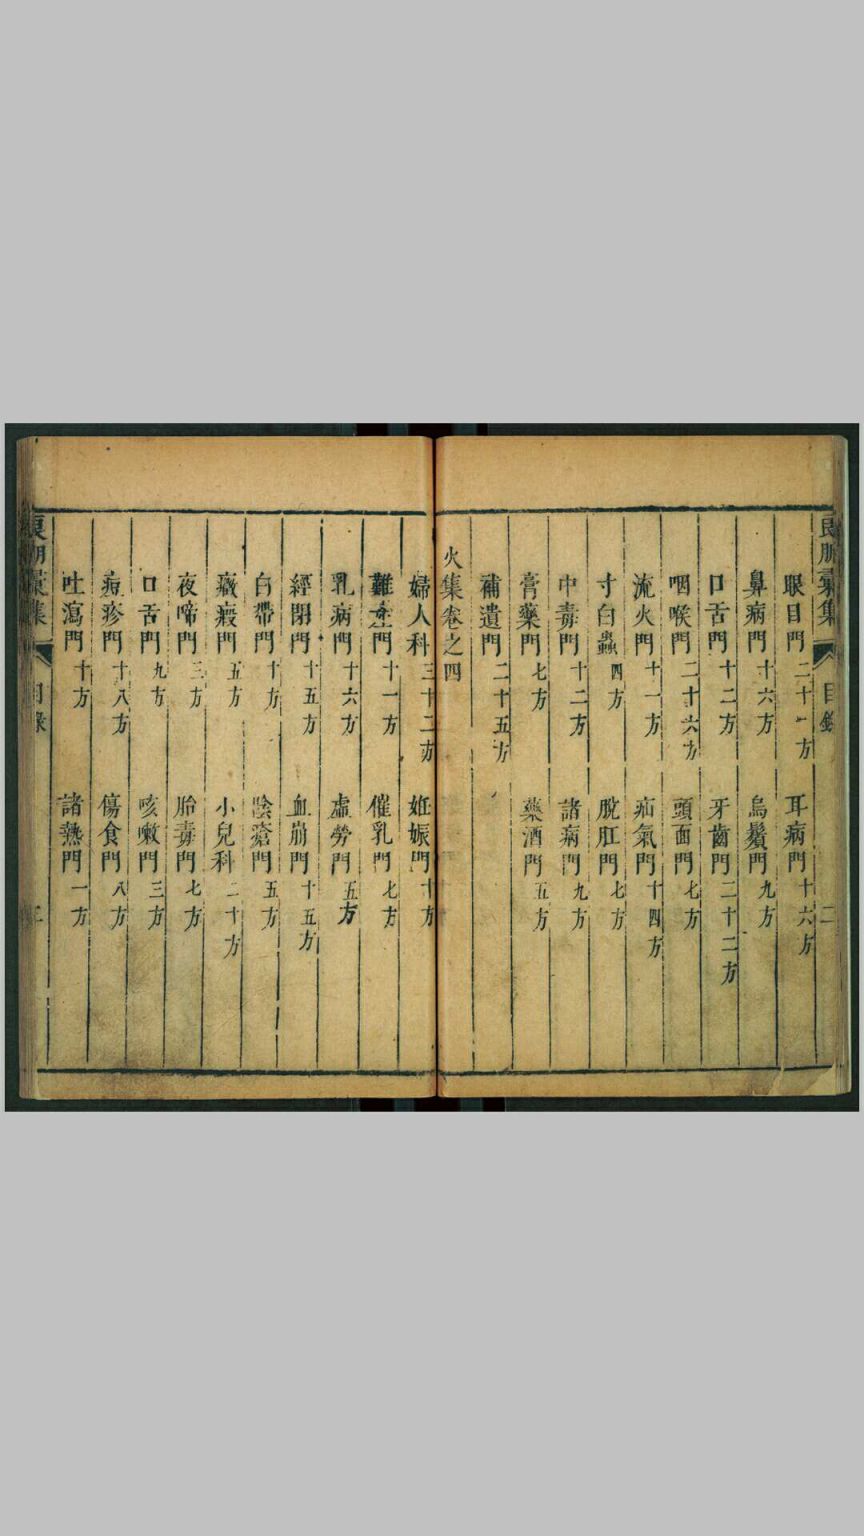 眼目門 二十一方 耳病門 十六方
鼻病門 十六方 烏鬚門 九方
口舌門 十二方 牙齒門 二十二方
咽喉門 二十六方 頭面門 七方
流火門 十一方 疝氣門 十四方
寸白蟲 四方 脫肛門 七方
中毒門 十二方 諸病門 九方
膏藥門 七方 藥酒門 五方
補遺門 二十五方
火集卷之四
婦人科 三十二方 姙娠門 十方
難產門 十一方 催乳門 七方
乳病門 十六方 虛勞門 五方
經閉門 十五方 血崩門 十五方
白帶門 十方 陰瘡門 五方
癥瘕門 五方 小兒科 二十方
夜啼門 三方 胎毒門 七方
口舌門 九方 咳嗽門 三方
痘疹門 十八方 傷食門 八方
吐瀉門 十方 諸熱門 一方
良朋彙集 目錄 二